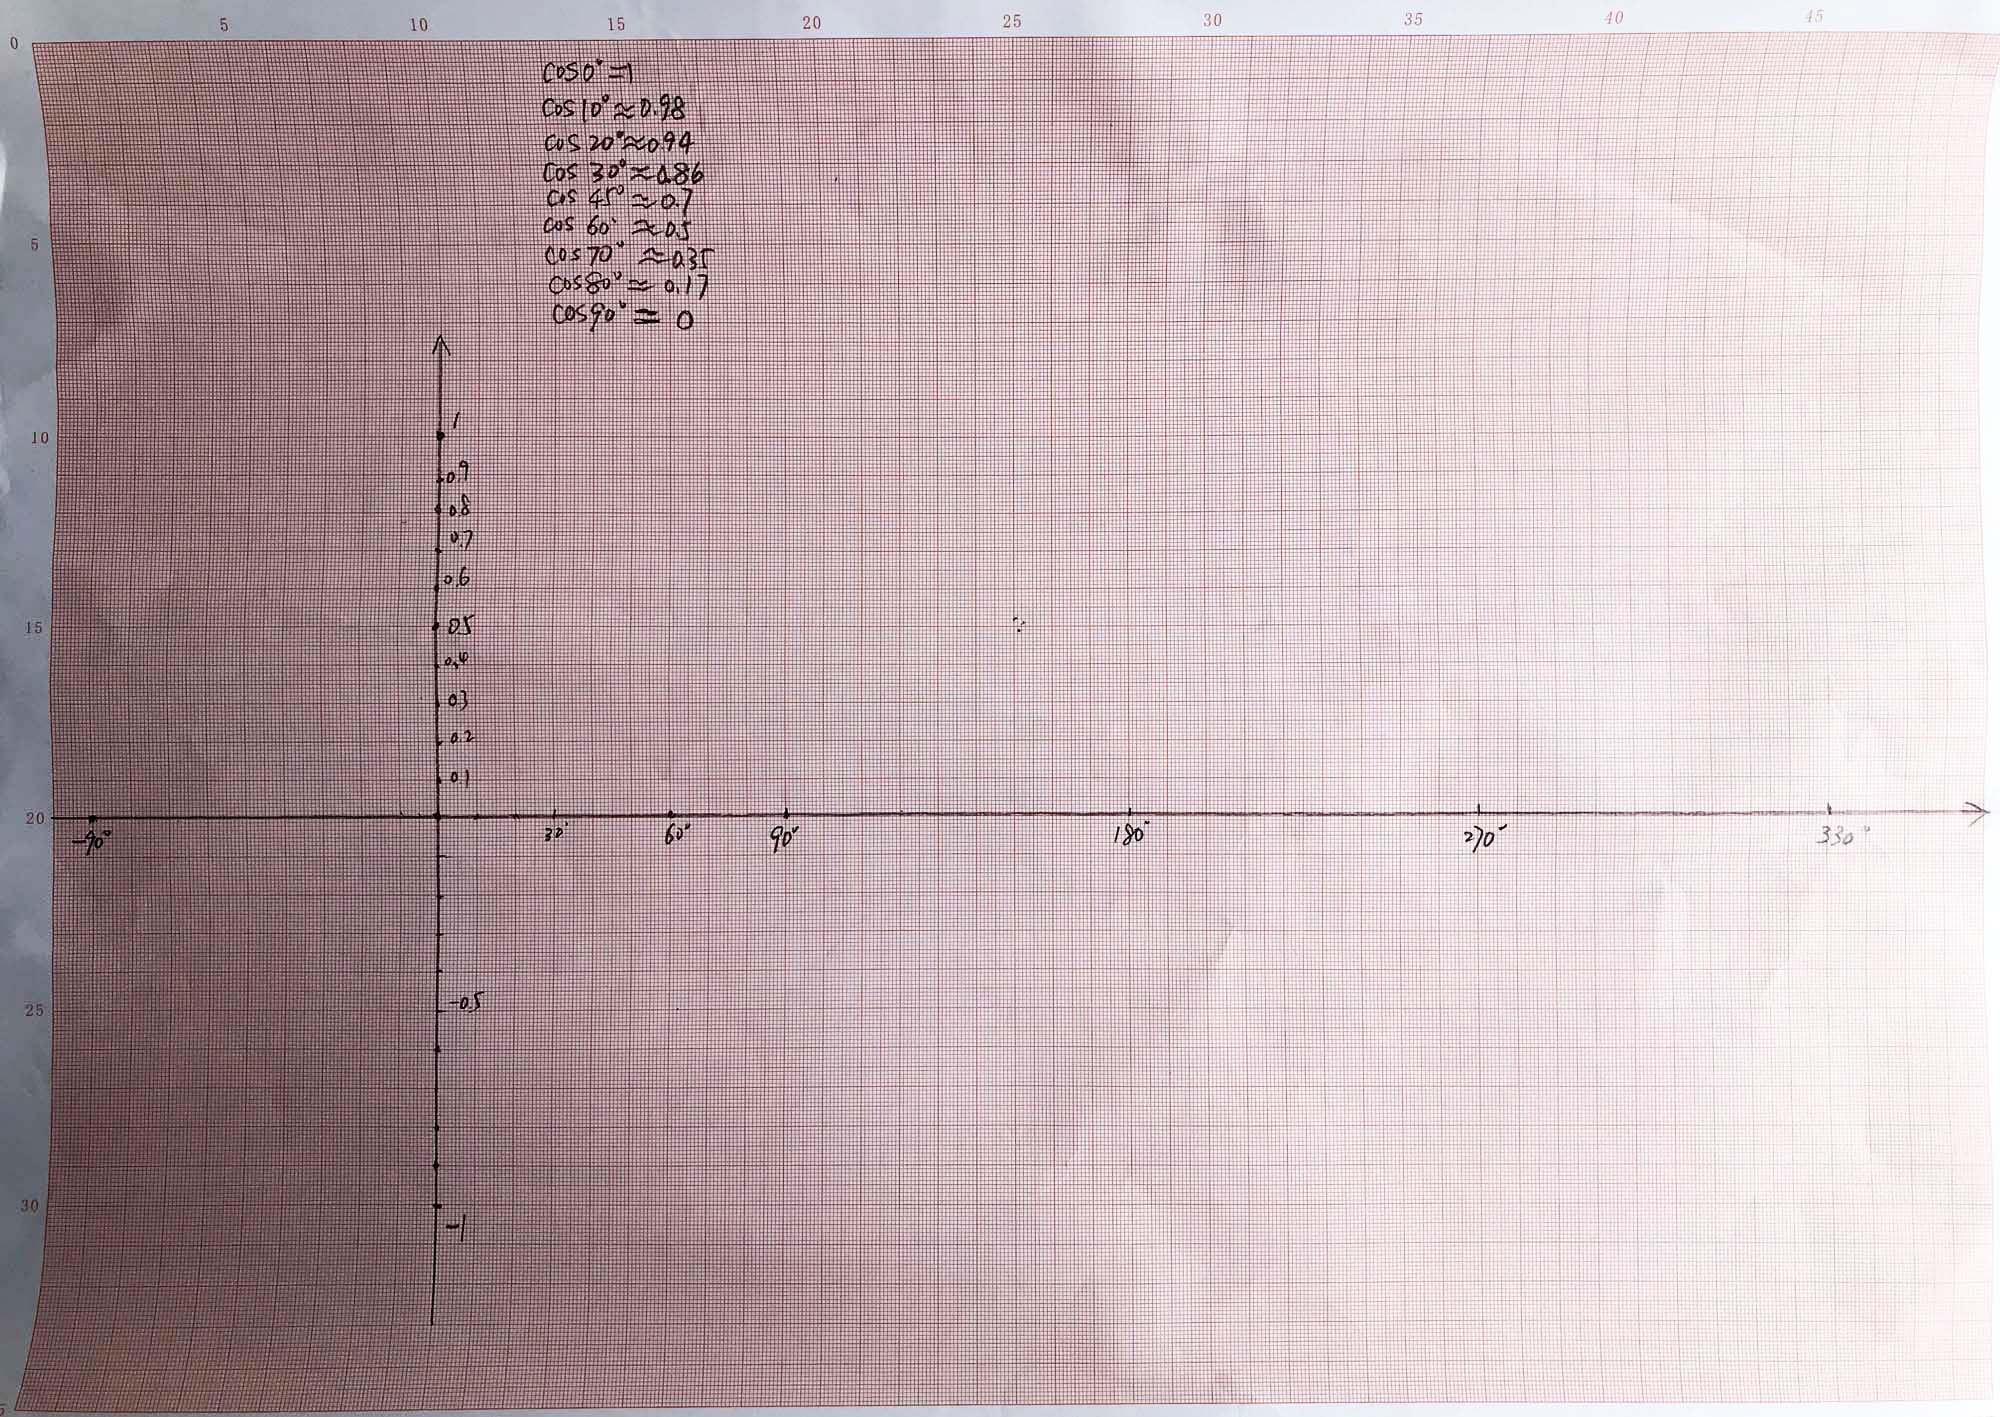 5 10 15 20 25 30 35 40 45
0
cos0°=1
cos10°≈0.98
cos20°≈0.94
cos 30°≈0.86
cos 45°≈0.7
cos 60°≈0.5
5
cos70°≈0.35
cos80°≈0.17
cos90°= 0
1
10
0.9
0.8
0.7
0.6
15
0.5
0.4
0.3
0.2
0.1
20
-90° 30° 60° 90° 180° 270° 330°
25
-0.5
30
-1